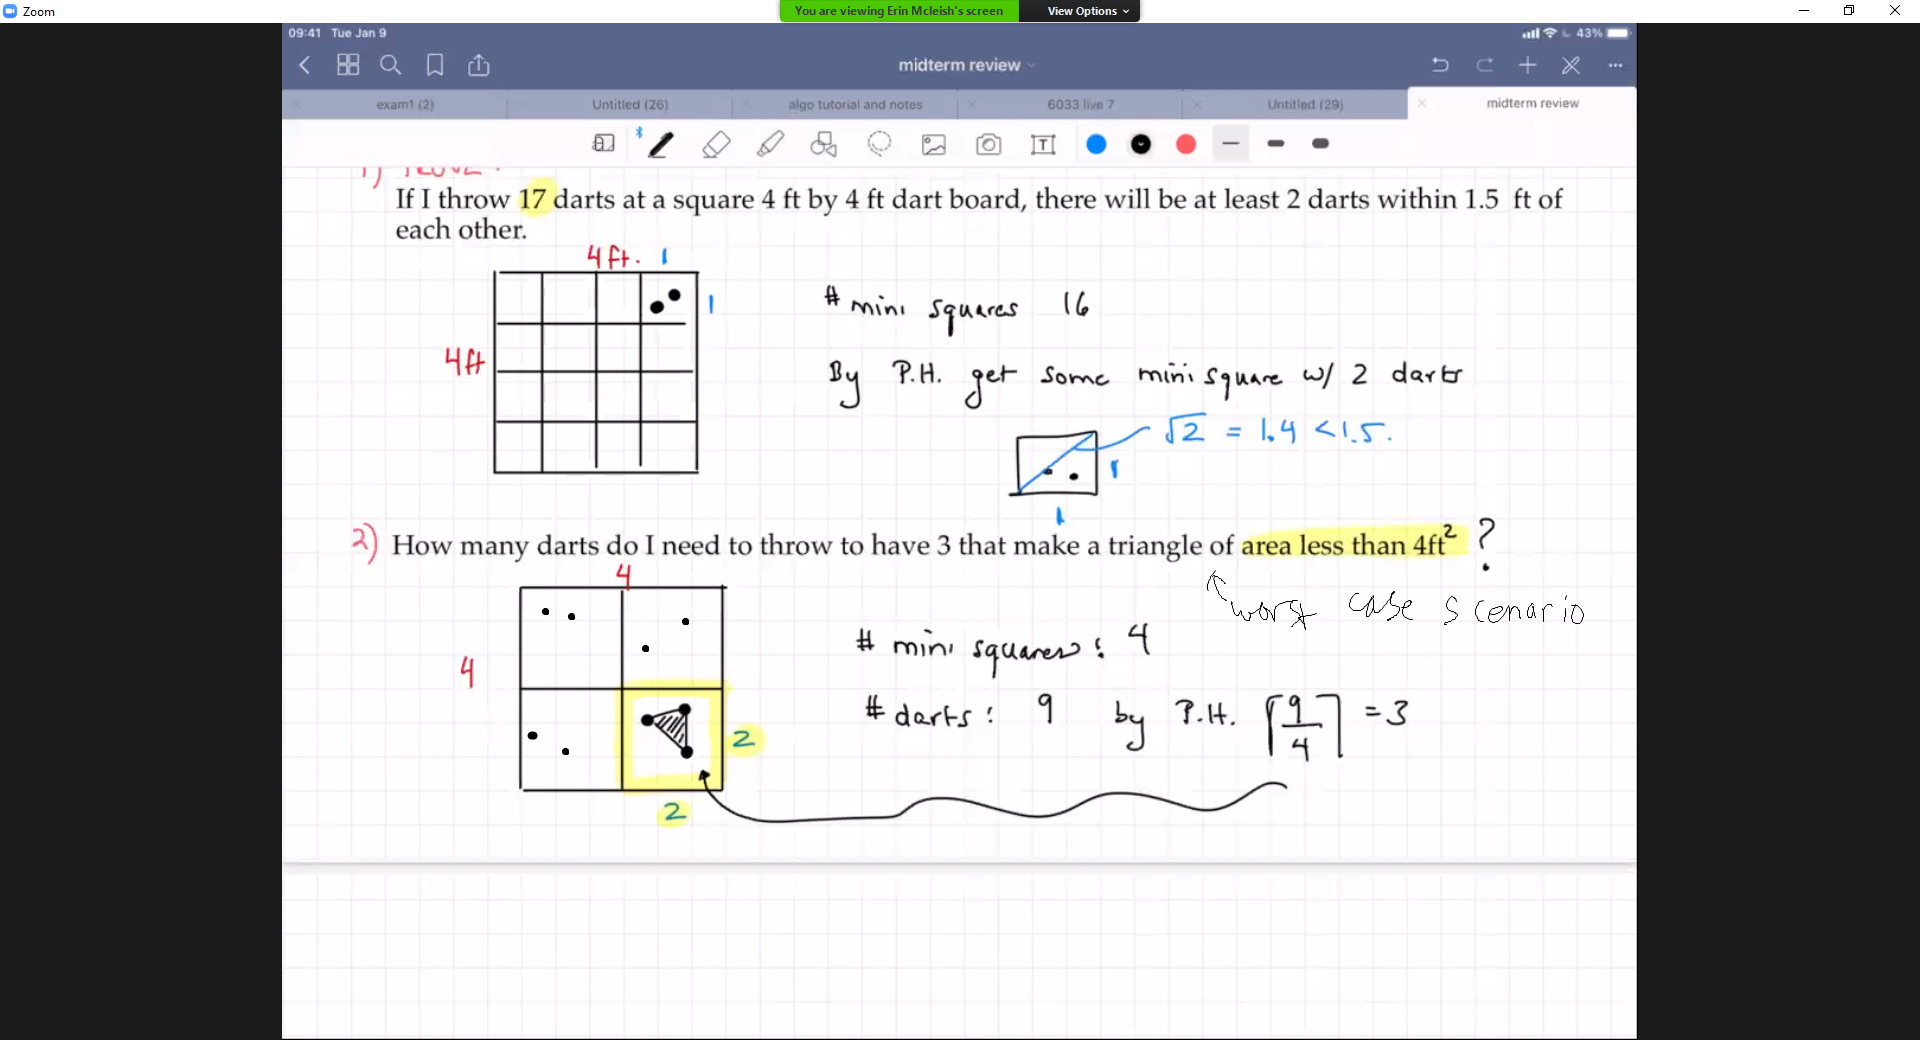 Zoom
You are viewing Erin Mcleish's screen
View Options
09:41 Tue Jan 9
43%
midterm review
exam1 (2)
Untitled (26)
algo tutorial and notes
6033 live 7
Untitled (29)
midterm review
T
1)
If I throw 17 darts at a square 4 ft by 4 ft dart board, there will be at least 2 darts within 1.5 ft of
each other.
4ft. 1
1
4ft
# mini squares 16
By P.H. get some mini square w/ 2 darts
√2 = 1.4 < 1.5.
1
1
2) How many darts do I need to throw to have 3 that make a triangle of area less than 4ft² ?
worst case scenario
4
4
2
2
# mini squares : 4
# darts : 9 by P.H. ⌈9/4⌉ = 3